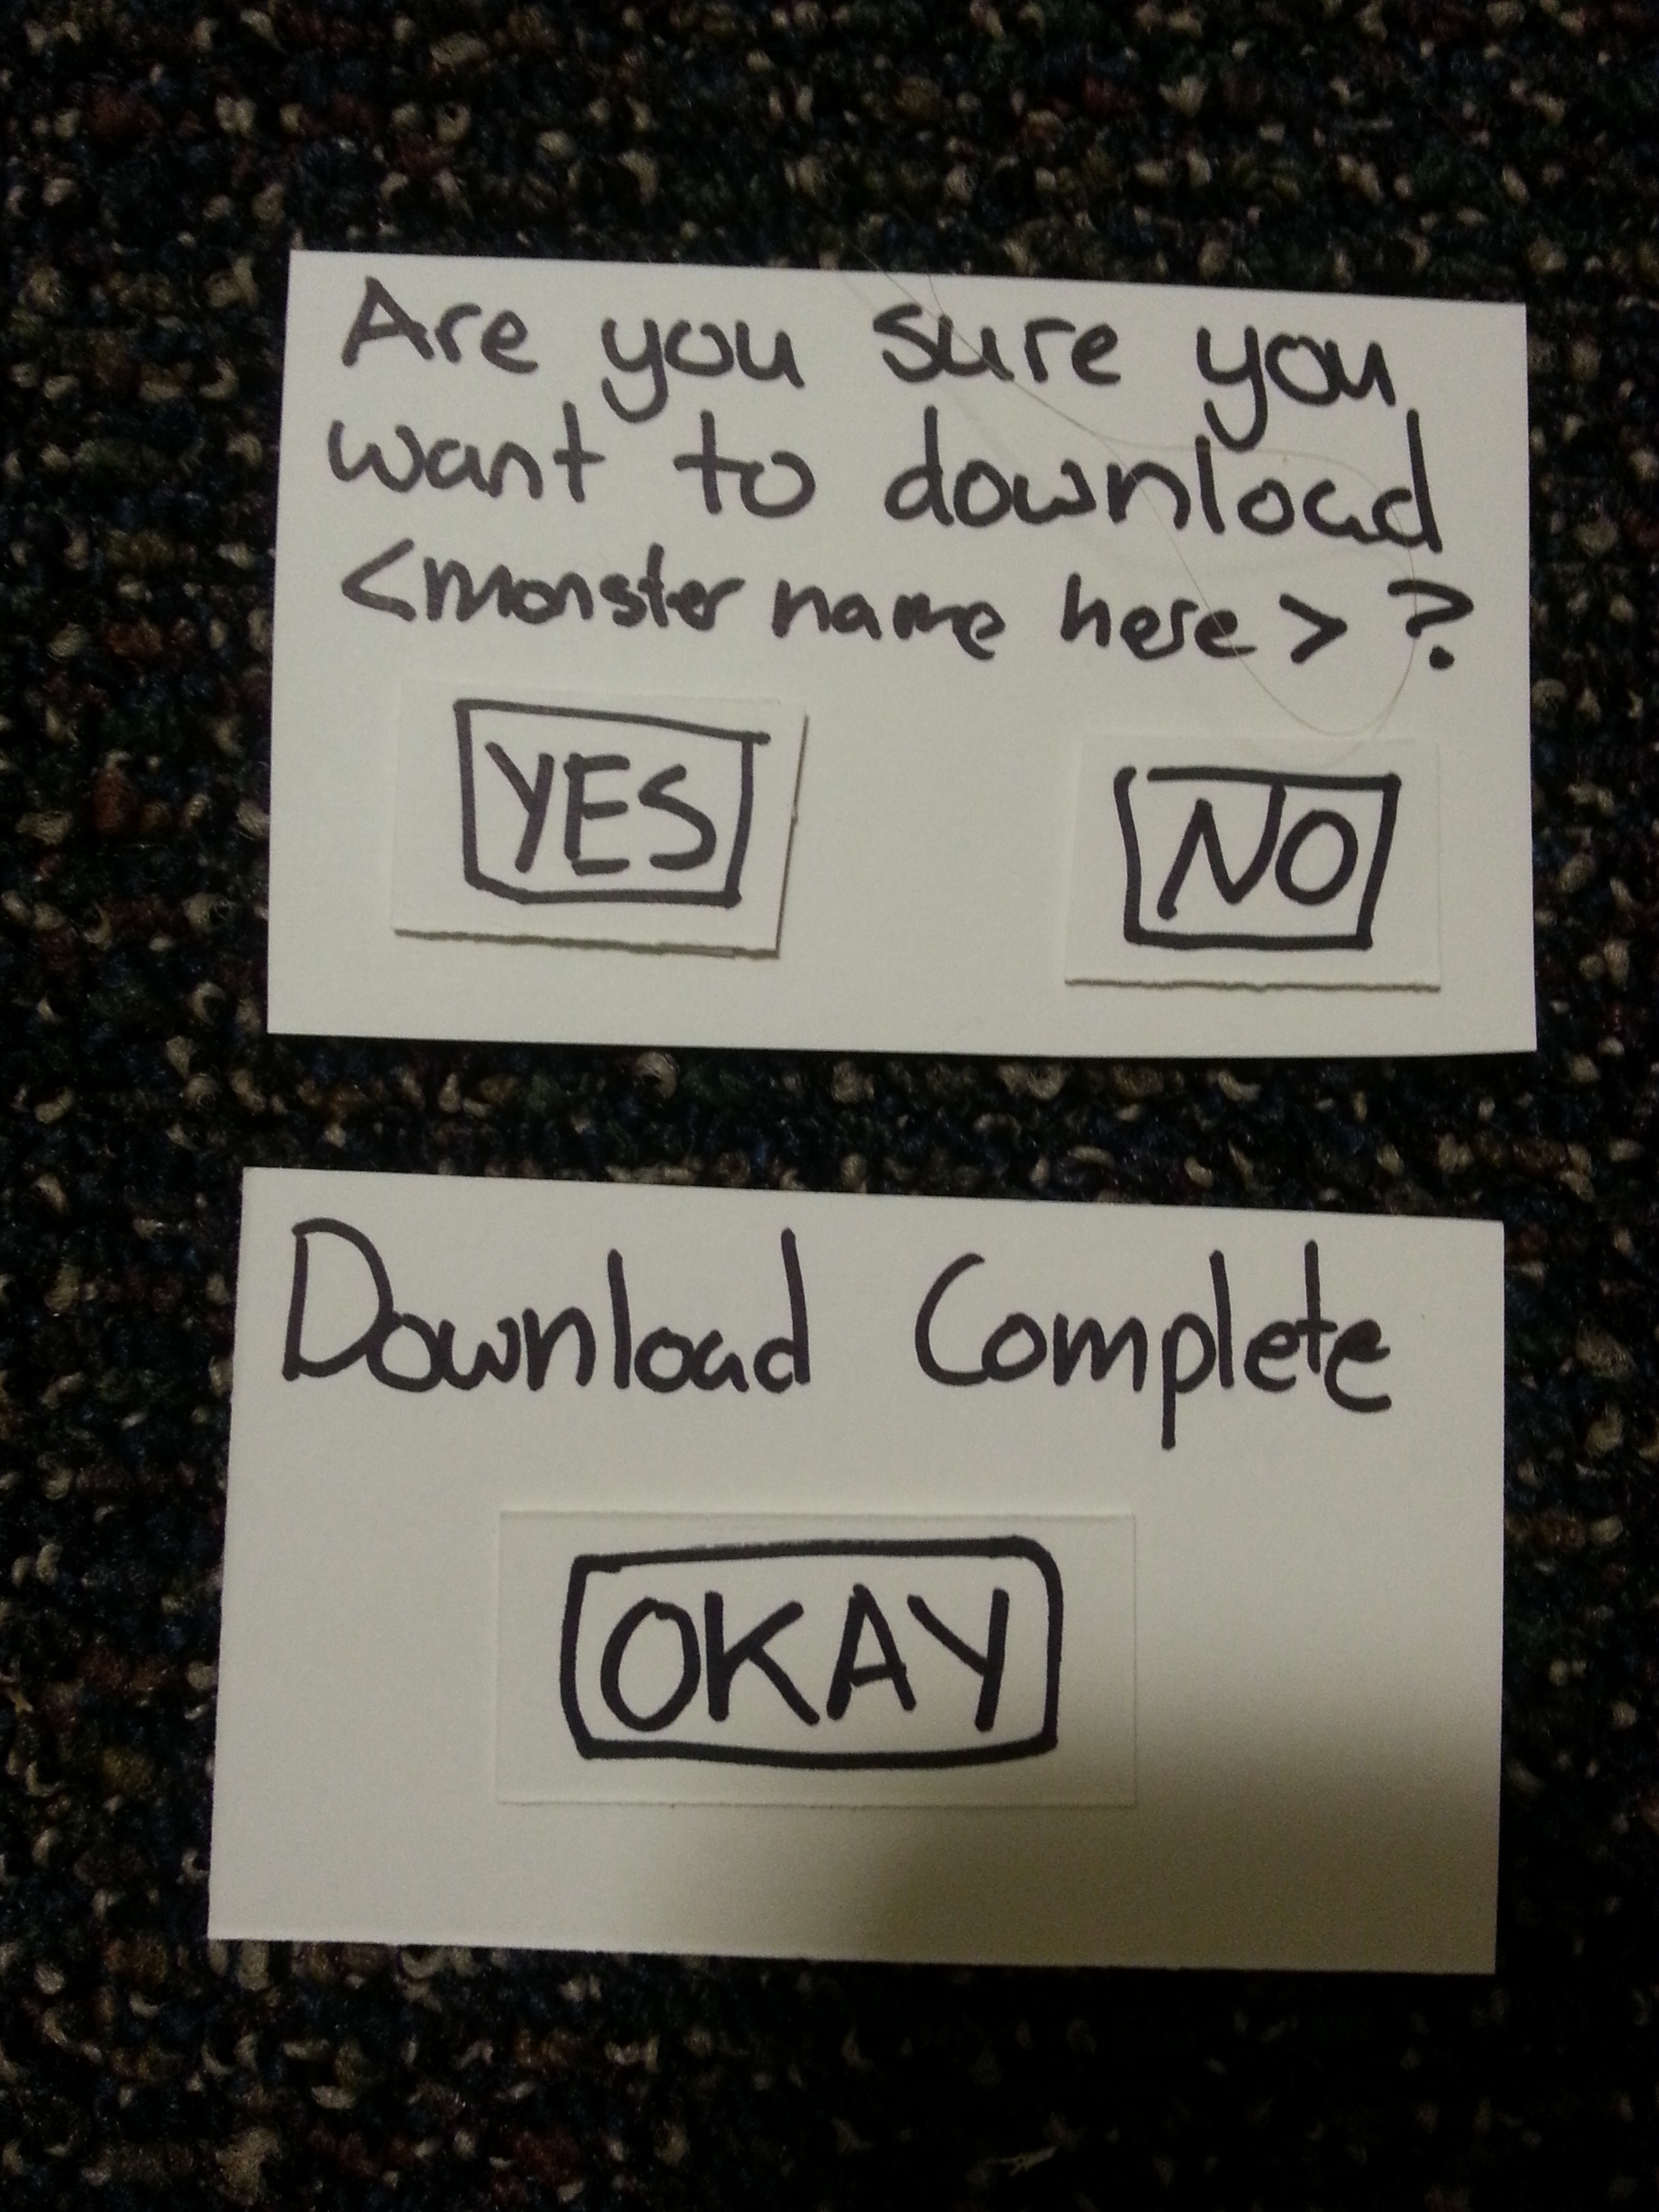 Are you sure you
want to download
<monster name here> ?
YES NO
Download Complete
OKAY